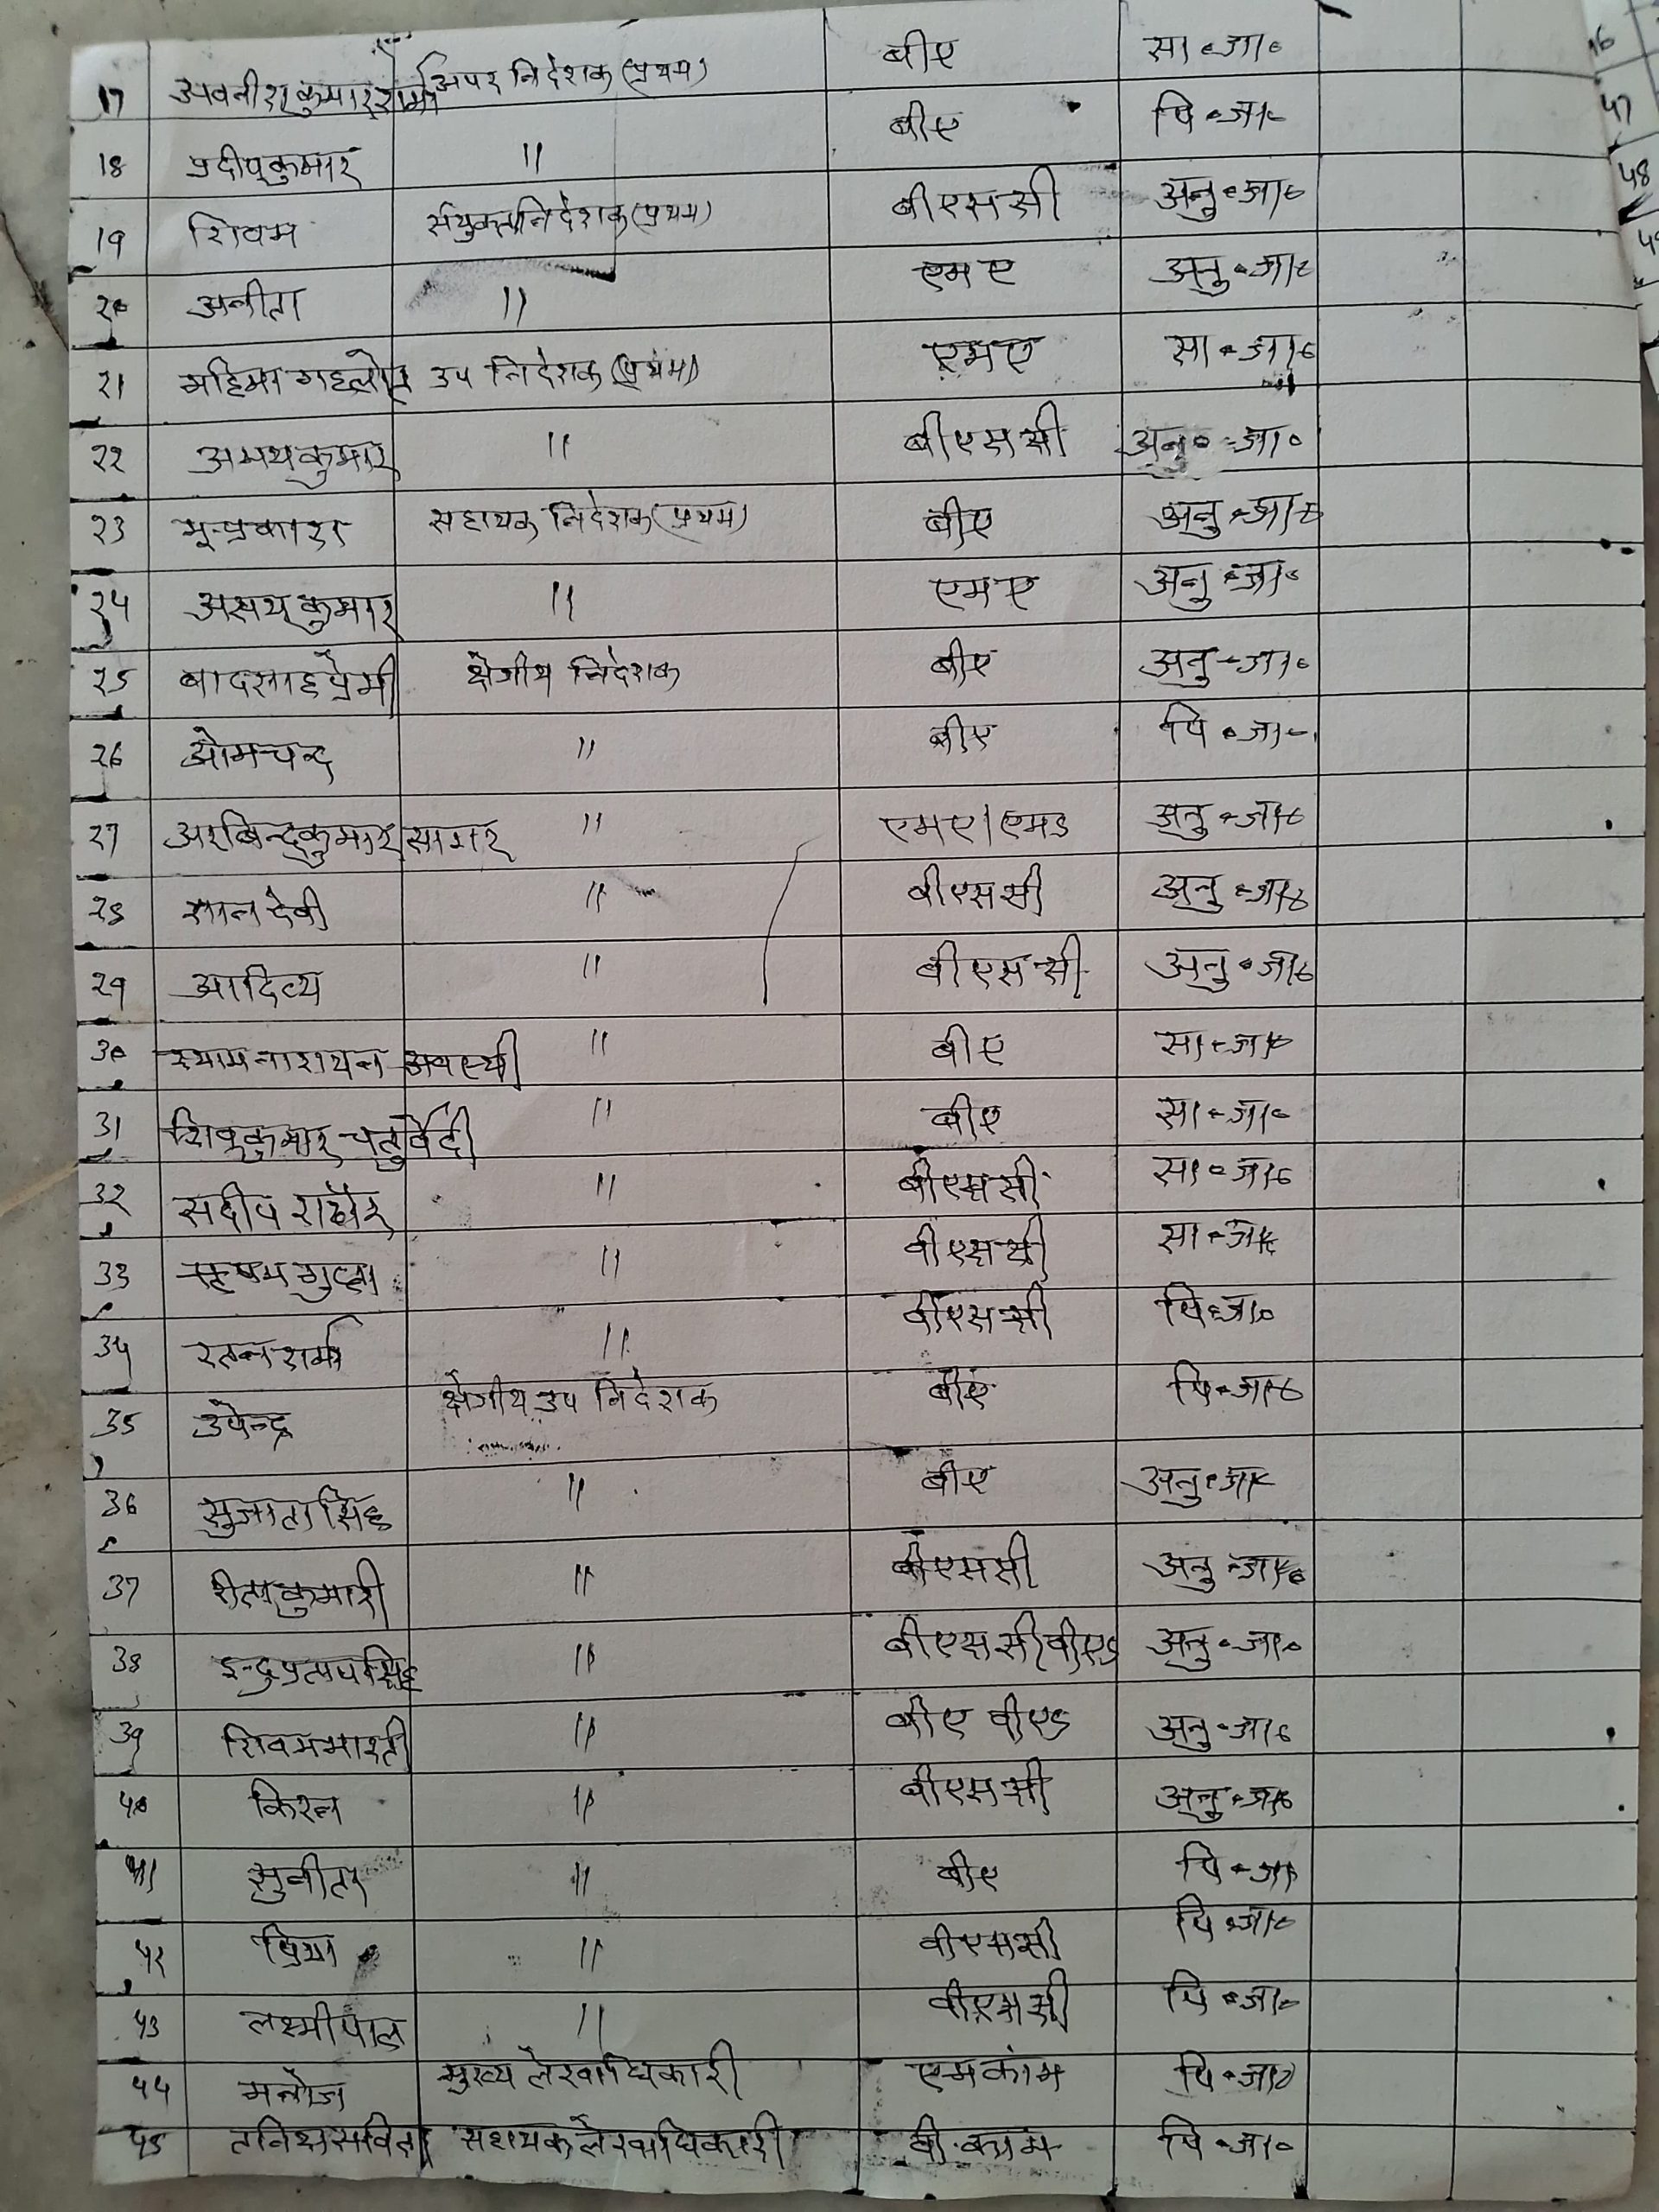 17 अवनीश कुमार शर्मा अपर निदेशक (प्रथम) बीए सा॰जा॰
18 प्रदीप कुमार " बीए पि॰जा॰
19 शिवम संयुक्त निदेशक (प्रथम) बीएससी अनु॰जा॰
20 अनीता " एमए अनु॰जा॰
21 महिमा गहलोत उप निदेशक (प्रथम) एमए सा॰जा॰
22 अभय कुमार " बीएससी अनु॰जा॰
23 भू-प्रकाश सहायक निदेशक (प्रथम) बीए अनु॰जा॰
24 अक्षय कुमार " एमए अनु॰जा॰
25 बादसाह प्रेमी क्षेत्रीय निदेशक बीए अनु॰जा॰
26 ओमचन्द्र " बीए पि॰जा॰
27 अरबिन्द कुमार सागर " एमए/एमड अनु॰जा॰
28 ज्ञान देवी " बीएससी अनु॰जा॰
29 आदित्य " बीएससी अनु॰जा॰
30 श्याम नारायन अवस्थी " बीए सा॰जा॰
31 शिवकुमार चतुर्वेदी " बीए सा॰जा॰
32 सदीप राठौर " बीएससी सा॰जा॰
33 गुप्ता " बीएससी सा॰जा॰
34 रतन शर्मा " बीएससी पि॰जा॰
35 उपेन्द्र क्षेत्रीय उप निदेशक बीए पि॰जा॰
36 सुजाता सिंह " बीए अनु॰जा॰
37 रीता कुमारी " बीएससी अनु॰जा॰
38 इन्द्र प्रताप सिंह " बीएससी/बीएड अनु॰जा॰
39 शिवम भारती " बीए बीएड अनु॰जा॰
40 किरन " बीएससी अनु॰जा॰
41 सुनीता " बीए पि॰जा॰
42 प्रिया " बीएससी पि॰जा॰
43 लक्ष्मी पाल " बीएससी पि॰जा॰
44 मनोज मुख्य लेखाधिकारी एमकांम पि॰जा॰
45 तनिक्ष सविता सहायक लेखाधिकारी बी.काम पि॰जा॰
16
47
48